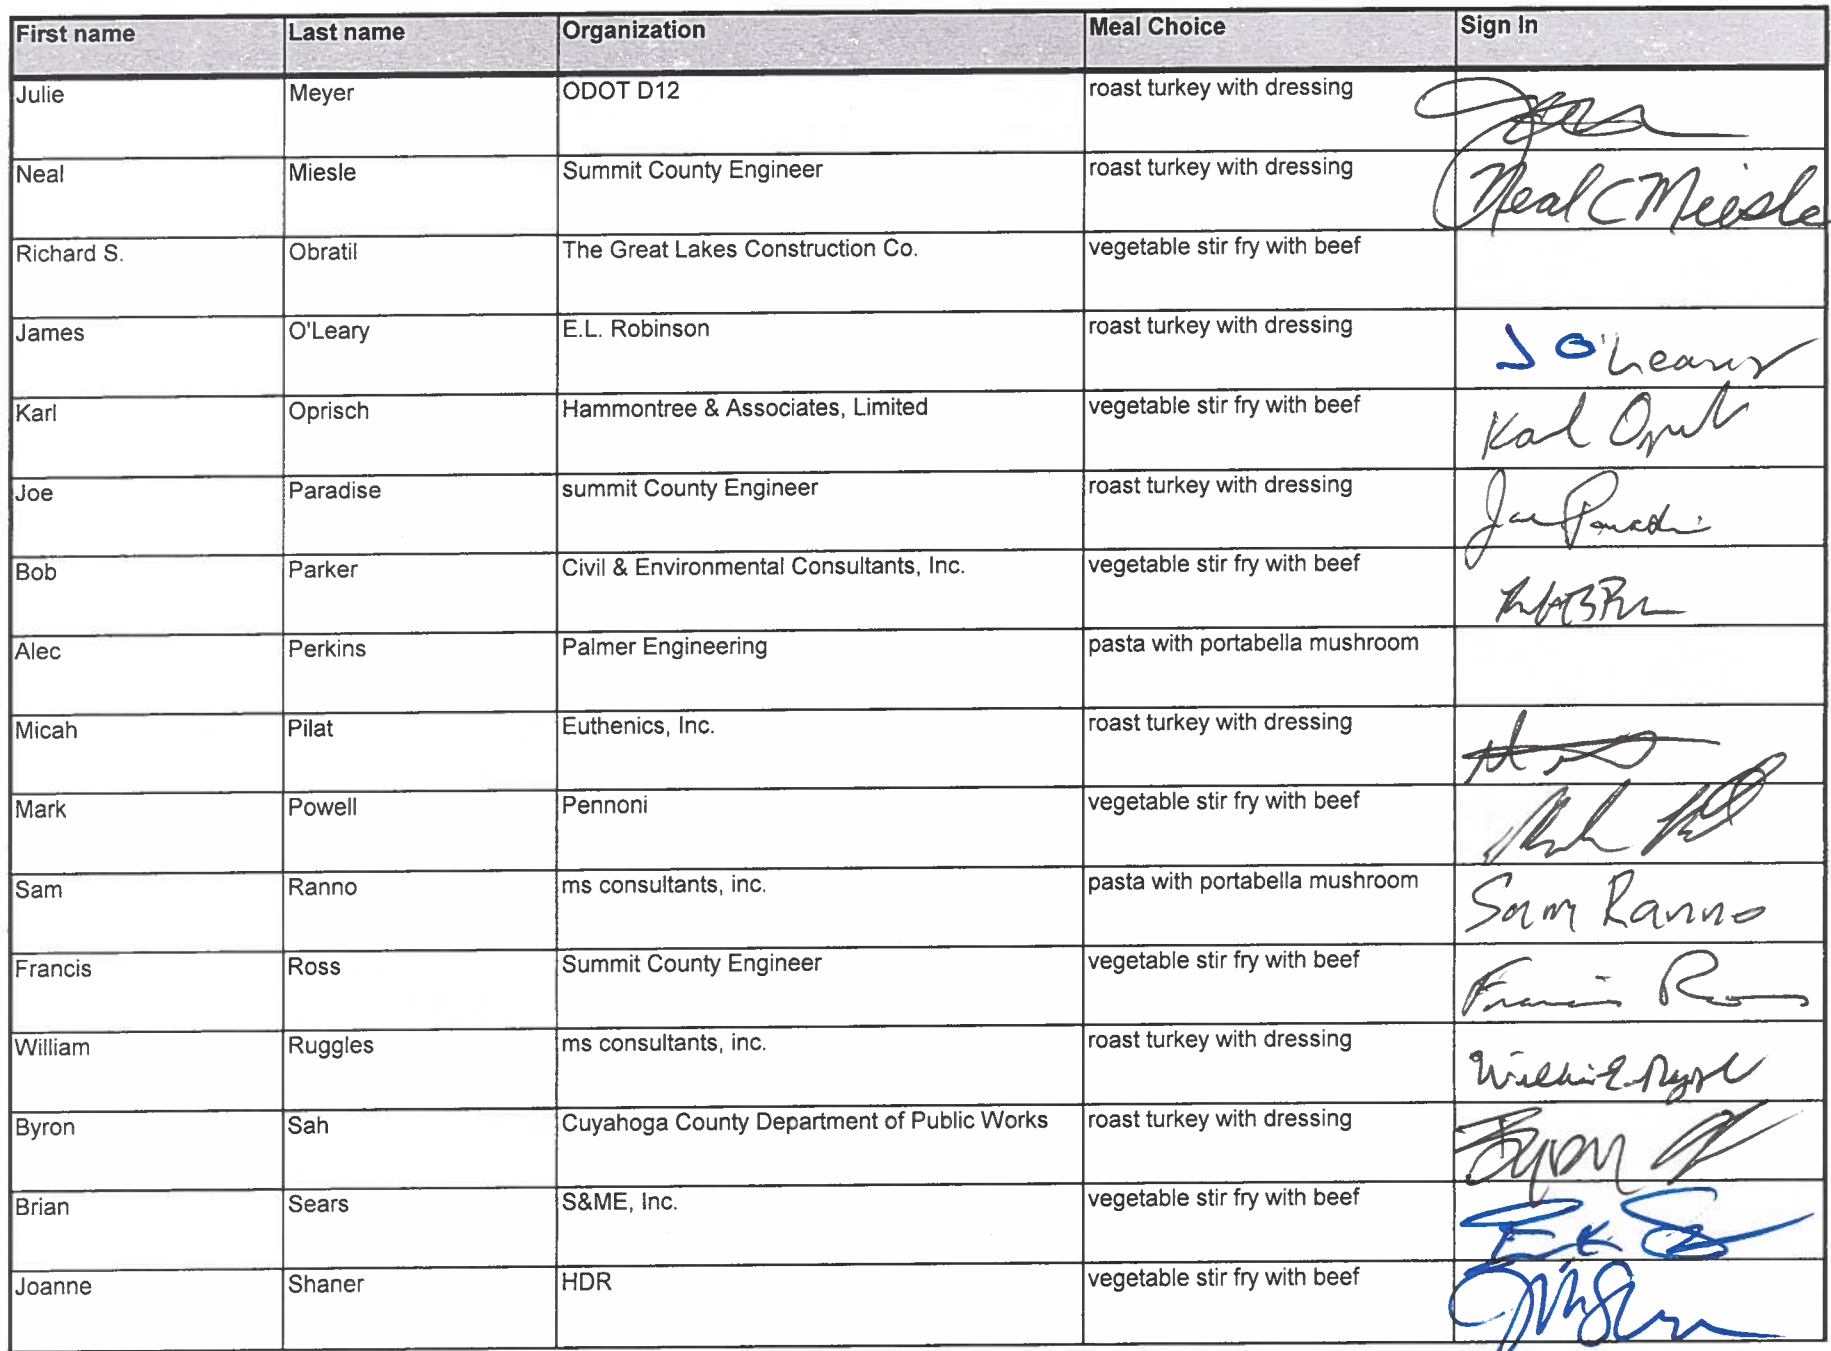 First name Last name Organization Meal Choice Sign In
Julie Meyer ODOT D12 roast turkey with dressing
Neal Miesle Summit County Engineer roast turkey with dressing Neal C Miesle
Richard S. Obratil The Great Lakes Construction Co. vegetable stir fry with beef
James O'Leary E.L. Robinson roast turkey with dressing J O'Leary
Karl Oprisch Hammontree & Associates, Limited vegetable stir fry with beef Karl
Joe Paradise summit County Engineer roast turkey with dressing Joe Paradise
Bob Parker Civil & Environmental Consultants, Inc. vegetable stir fry with beef
Alec Perkins Palmer Engineering pasta with portabella mushroom
Micah Pilat Euthenics, Inc. roast turkey with dressing
Mark Powell Pennoni vegetable stir fry with beef
Sam Ranno ms consultants, inc. pasta with portabella mushroom Sam Ranno
Francis Ross Summit County Engineer vegetable stir fry with beef Francis
William Ruggles ms consultants, inc. roast turkey with dressing
Byron Sah Cuyahoga County Department of Public Works roast turkey with dressing Byron
Brian Sears S&ME, Inc. vegetable stir fry with beef
Joanne Shaner HDR vegetable stir fry with beef